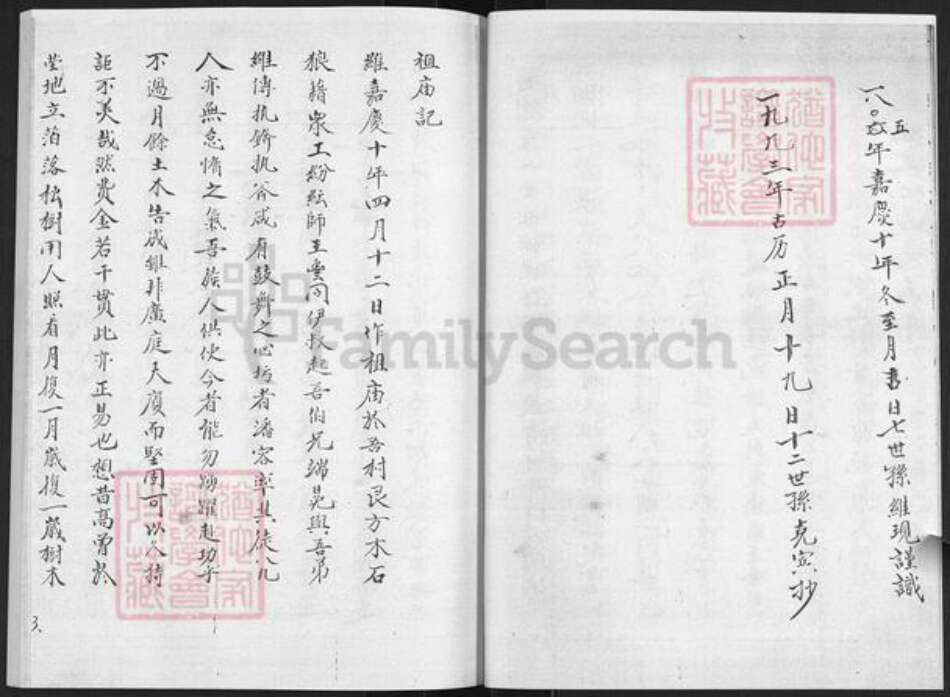 一八〇五年嘉慶十年冬至月吉日七世孫維現謹識
一九九三年古历正月十九日十二世孫克寅抄
祖庙記
維嘉慶十年四月十二日作祖庙於吾村艮方木石
狼籍衆工紛紜師主虞问伊扶起吾伯兄端晃與吾弟
維傳执錡执斧咸有鼓舞之心圬者潘容率其徒八九
人亦無怠惰之氣吾族人供使令者能勿踴躍赴功乎
不過月餘土木告成雖非廣庭大廈而堅固可以久持
詎不美哉然费金若干贯此亦正易也想昔高曾於
堂地立泊落松樹用人照看月復一月歲復一歲樹木
3.
FamilySearch